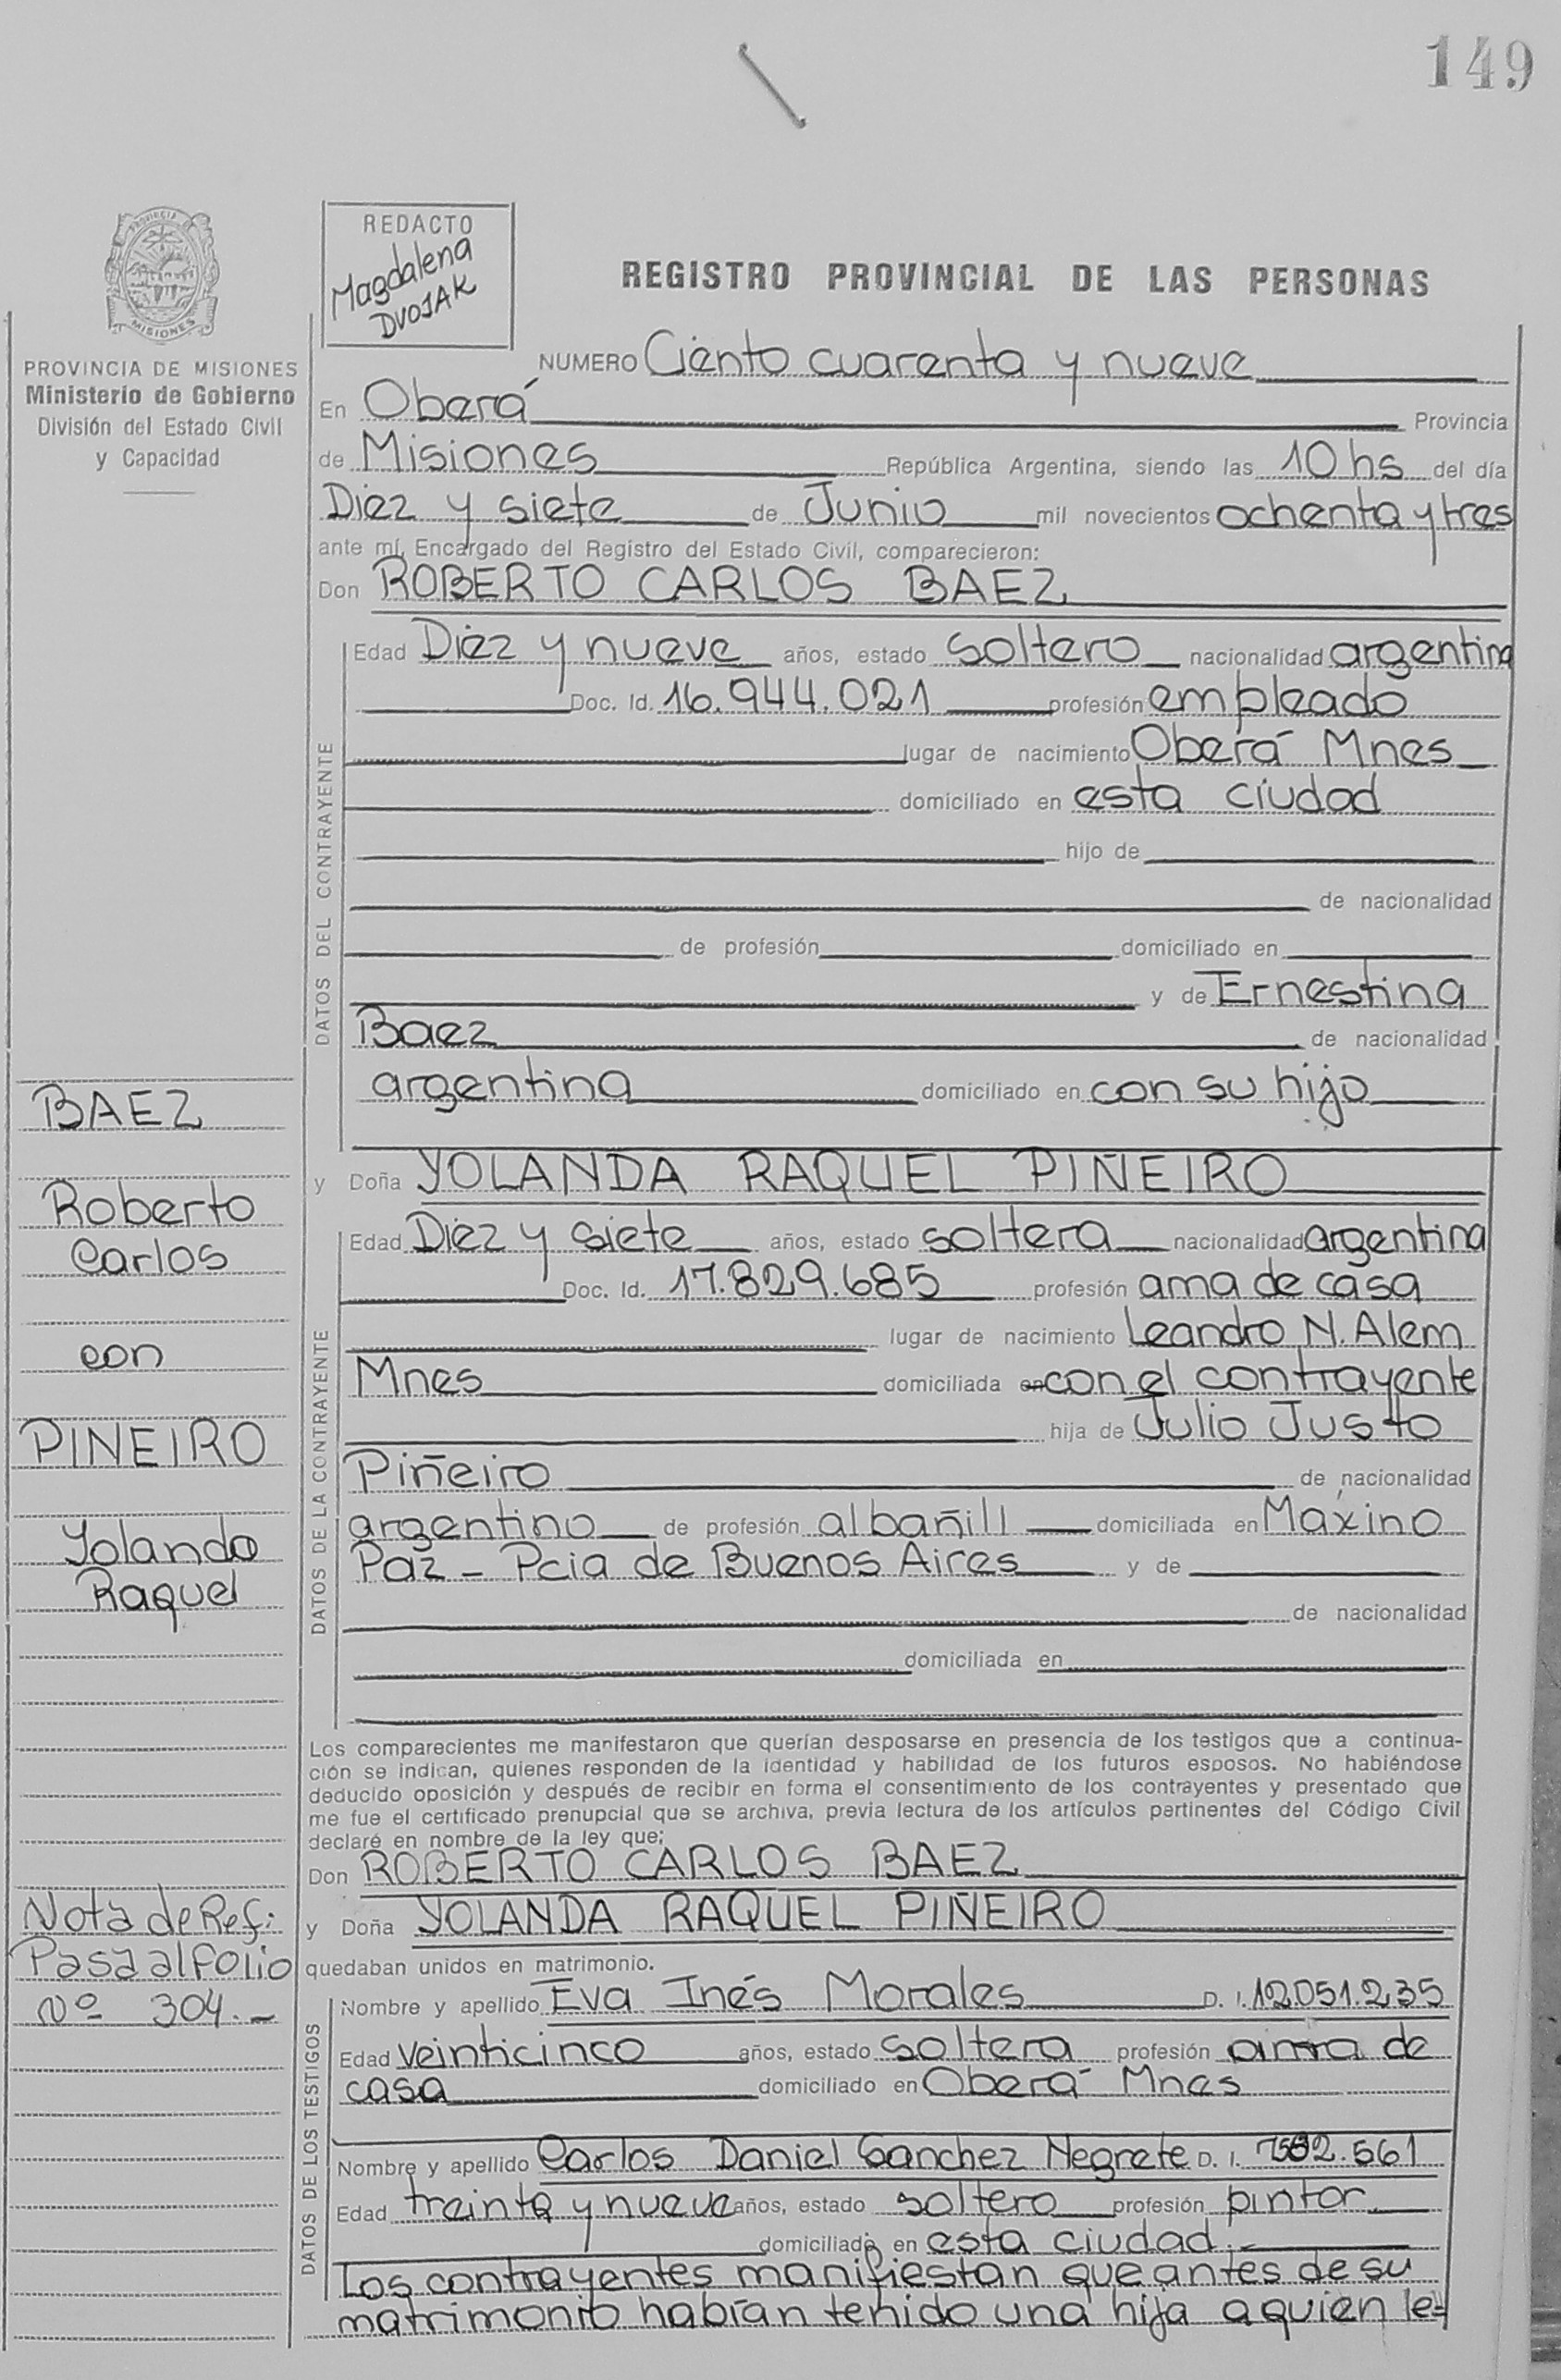 149
PROVINCIA
MISIONES
PROVINCIA DE MISIONES
Ministerio de Gobierno
División del Estado Civil
y Capacidad
REDACTO
Magdalena
DVOJAK
REGISTRO PROVINCIAL DE LAS PERSONAS
NUMERO Ciento cuarenta y nueve
En Oberá Provincia
de Misiones República Argentina, siendo las 10 hs del día
Diez y siete de Junio mil novecientos ochenta y tres
ante mí, Encargado del Registro del Estado Civil, comparecieron:
Don ROBERTO CARLOS BAEZ
DATOS DEL CONTRAYENTE
Edad Diez y nueve años, estado soltero nacionalidad argentina
Doc. Id. 16.944.021 profesión empleado
lugar de nacimiento Oberá Mnes
domiciliado en esta ciudad
hijo de
de nacionalidad
de profesión domiciliado en
y de Ernestina
Baez de nacionalidad
argentina domiciliado en con su hijo
y Doña YOLANDA RAQUEL PIÑEIRO
DATOS DE LA CONTRAYENTE
Edad Diez y siete años, estado soltera nacionalidad argentina
Doc. Id. 17.829.685 profesión ama de casa
lugar de nacimiento Leandro N. Alem
Mnes domiciliada en con el contrayente
hija de Julio Justo
Piñeiro de nacionalidad
argentino de profesión albañill domiciliada en Máximo
Paz - Pcia de Buenos Aires y de
de nacionalidad
domiciliada en
Los comparecientes me manifestaron que querían desposarse en presencia de los testigos que a continua-
ción se indican, quienes responden de la identidad y habilidad de los futuros esposos. No habiéndose
deducido oposición y después de recibir en forma el consentimiento de los contrayentes y presentado que
me fue el certificado prenupcial que se archiva, previa lectura de los artículos pertinentes del Código Civil
declaré en nombre de la ley que:
Don ROBERTO CARLOS BAEZ
y Doña YOLANDA RAQUEL PIÑEIRO
quedaban unidos en matrimonio.
DATOS DE LOS TESTIGOS
Nombre y apellido Eva Inés Morales D. I. 12.051.235
Edad veinticinco años, estado soltera profesión ama de
casa domiciliado en Oberá Mnes
Nombre y apellido Carlos Daniel Sanchez Negrete D. I.
Edad treinta y nueve años, estado soltero profesión pintor
domiciliado en esta ciudad.-
Los contrayentes manifiestan que antes de su
matrimonio habían tenido una hija a quien le=
BAEZ
Roberto
Carlos
con
PINEIRO
Yolanda
Raquel
Nota de Ref:
Pasa al Folio
Nº 304.-